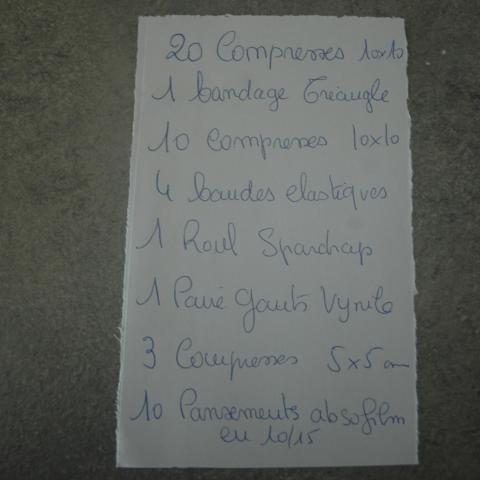 20 Compresses 10x10
1 bandage Triangle
10 compresses 10x10
4 bandes elastiques
1 Roul Spardrap
1 Paire gants Vynile
3 Compresses 5x5 cm
10 Pansements absofilm
en 10/15